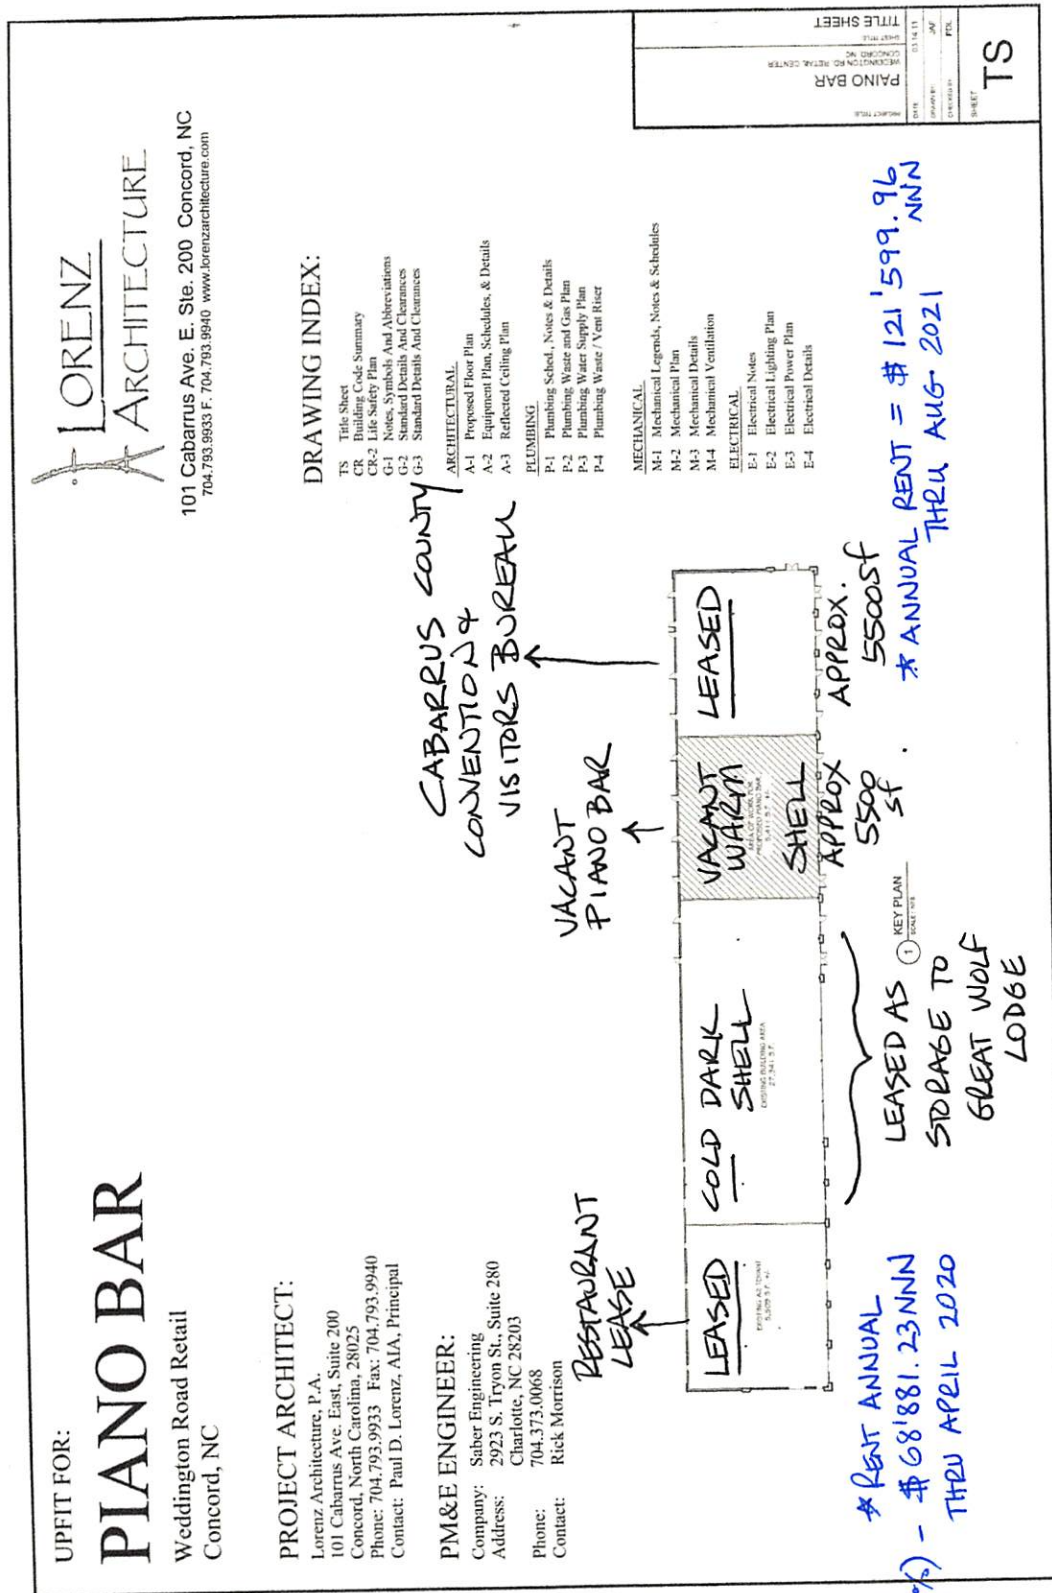 UPFIT FOR:
PIANO BAR
Weddington Road Retail
Concord, NC
PROJECT ARCHITECT:
Lorenz Architecture, P.A.
101 Cabarrus Ave. East, Suite 200
Concord, North Carolina, 28025
Phone: 704.793.9933 Fax: 704.793.9940
Contact: Paul D. Lorenz, AIA, Principal
PM&E ENGINEER:
Company: Saber Engineering
Address: 2923 S. Tryon St., Suite 280
Charlotte, NC 28203
Phone: 704.373.0068
Contact: Rick Morrison
LORENZ
ARCHITECTURE
101 Cabarrus Ave. E. Ste. 200 Concord, NC
704.793.9933 F. 704.793.9940 www.lorenzarchitecture.com
DRAWING INDEX:
TS Title Sheet
CR Building Code Summary
CR-2 Life Safety Plan
G-1 Notes, Symbols And Abbreviations
G-2 Standard Details And Clearances
G-3 Standard Details And Clearances
ARCHITECTURAL
A-1 Proposed Floor Plan
A-2 Equipment Plan, Schedules, & Details
A-3 Reflected Ceiling Plan
PLUMBING
P-1 Plumbing Sched., Notes & Details
P-2 Plumbing Waste and Gas Plan
P-3 Plumbing Water Supply Plan
P-4 Plumbing Waste / Vent Riser
MECHANICAL
M-1 Mechanical Legends, Notes & Schedules
M-2 Mechanical Plan
M-3 Mechanical Details
M-4 Mechanical Ventilation
ELECTRICAL
E-1 Electrical Notes
E-2 Electrical Lighting Plan
E-3 Electrical Power Plan
E-4 Electrical Details
CABARRUS COUNTY
CONVENTION &
VISITORS BUREAU
VACANT
PIANO BAR
RESTAURANT
LEASE
LEASED
EXISTING A2 TENANT
COLD DARK
SHELL
EXISTING BUILDING AREA
27,341 S.F.
VACANT
WARM
SHELL
AREA OF WORK FOR
PROPOSED PIANO BAR
LEASED
APPROX
5500
sf
APPROX.
5500sf
1 KEY PLAN
SCALE: NTS
LEASED AS
STORAGE TO
GREAT WOLF
LODGE
* RENT ANNUAL
%) - $68'881.23 NNN
THRU APRIL 2020
* ANNUAL RENT = $121'599.96
NNN
THRU AUG. 2021
PROJECT TITLE:
PAINO BAR
WEDDINGTON RD. RETAIL CENTER
CONCORD, NC
SHEET TITLE
TITLE SHEET
DATE: 03.14.11
DRAWN BY: JAF
CHECKED BY: PDL
SHEET
TS